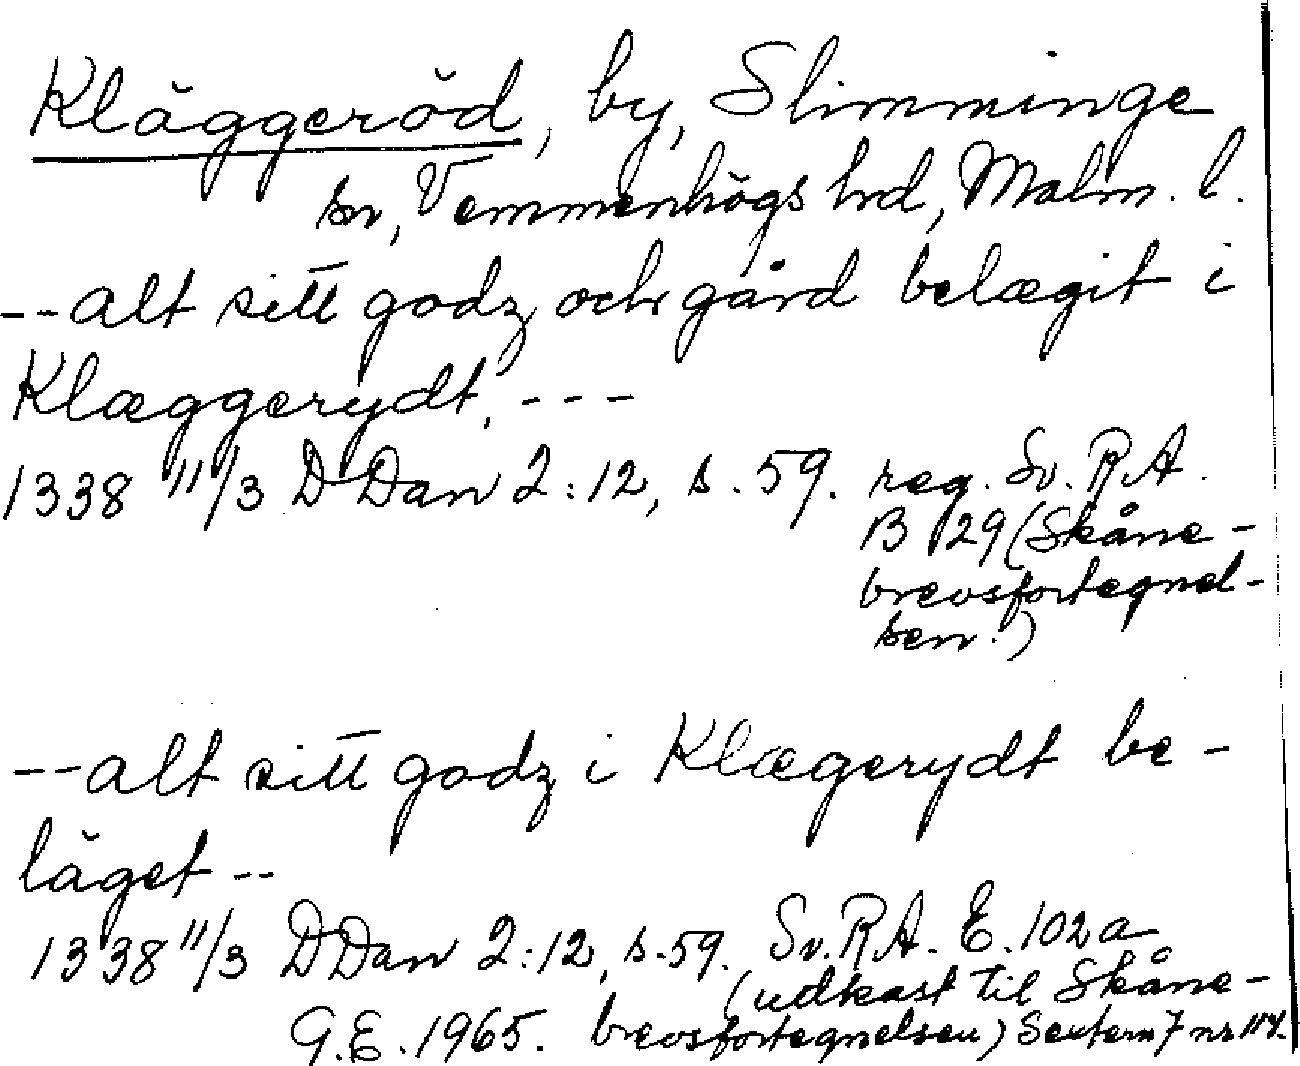 Kläggeröd, by, Slimminge
sn, Vemmenhögs hrd, Malm. l.
--alt sitt godz och gård belægit i
Klæggerydt, ---
1338 11/3 DDan 2:12, s. 59. reg. Sv. R A.
B 129 (Skåne-
brevsfortegnel-
sen.)
--alt sitt godz i Klægerydt be-
läget--
1338 11/3 DDan 2:12, s. 59. Sv. R A. E. 102a
(udkast til Skåne-
G.E. 1965. brevsfortegnelsen) Sextern 7 nr 114.